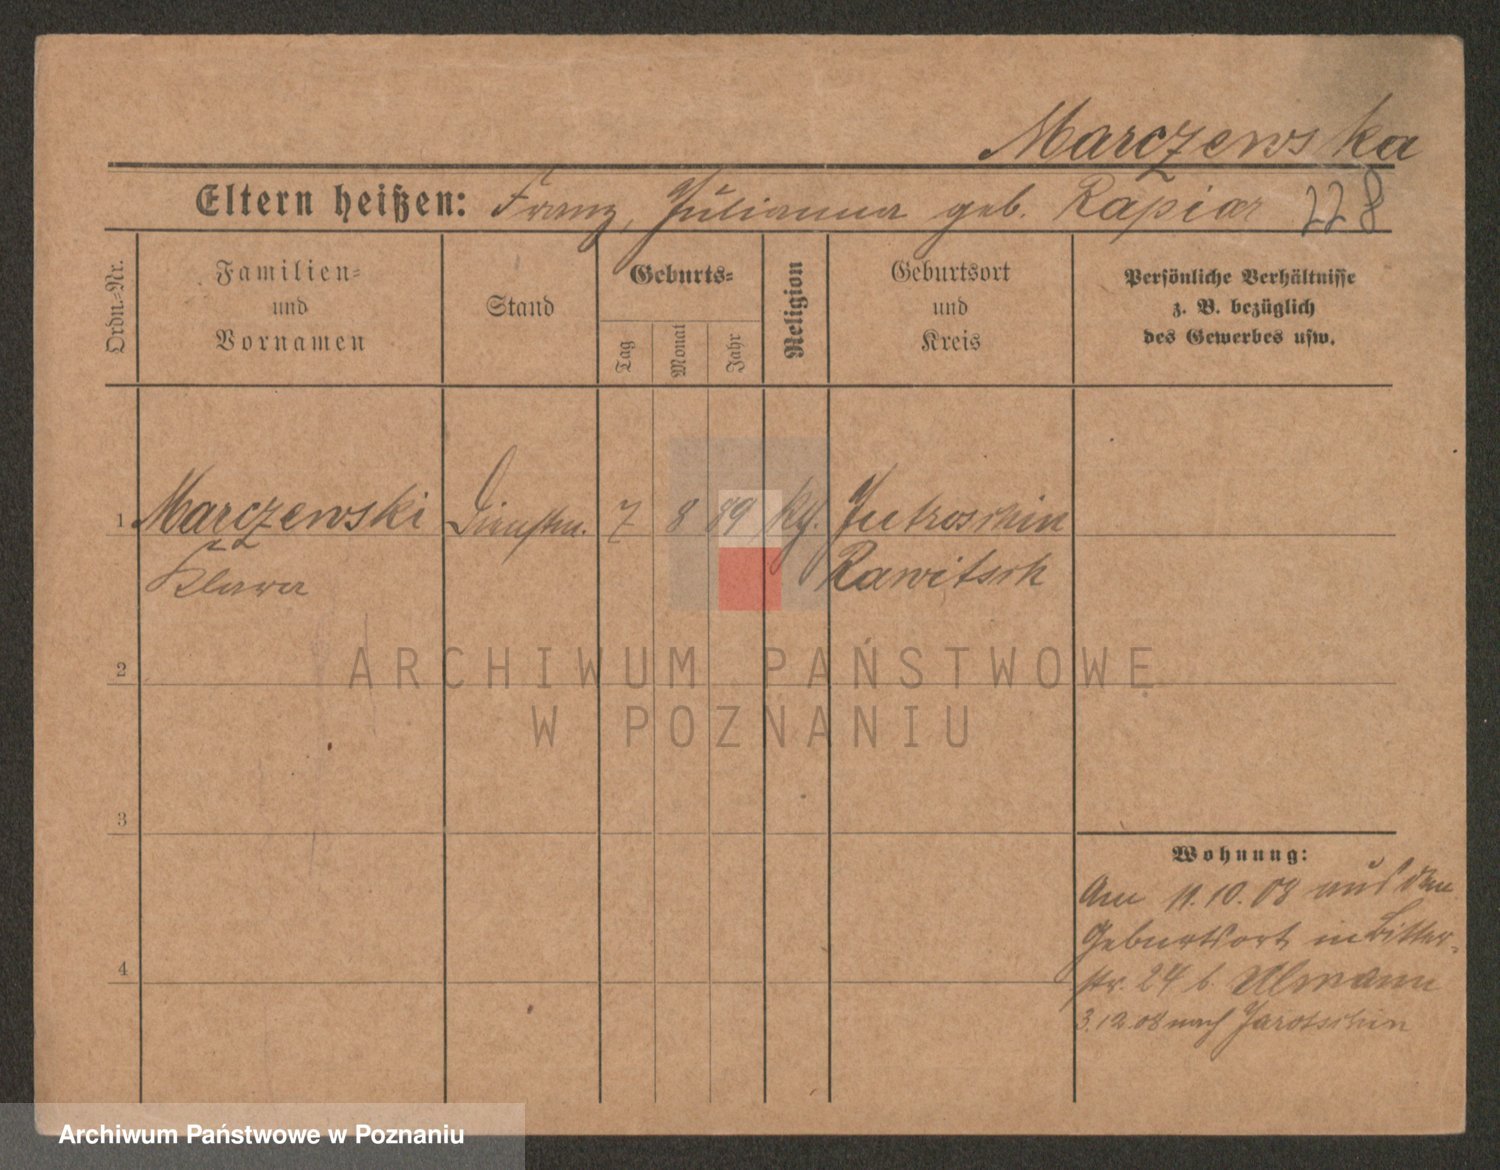 Marczewska
Eltern heißen: Franz, Julianna geb. Rapior 228
Ordn.=Nr.
Familien=
und
Vornamen
Stand
Geburts=
Tag
Monat
Jahr
Religion
Geburtsort
und
Kreis
Persönliche Verhältnisse
z. B. bezüglich
des Gewerbes usw.
1 Marczewski Dienstm. 7 8 89 kg. Jutroschin
Klara Rawitsch
2
ARCHIWUM PAŃSTWOWE
W POZNANIU
3
Wohnung:
Am 11.10.08 aus dem
Geburtsort in Ritter-
4
str. 24 b. Ulmann
3.12.08 nach Jarotschin
Archiwum Państwowe w Poznaniu